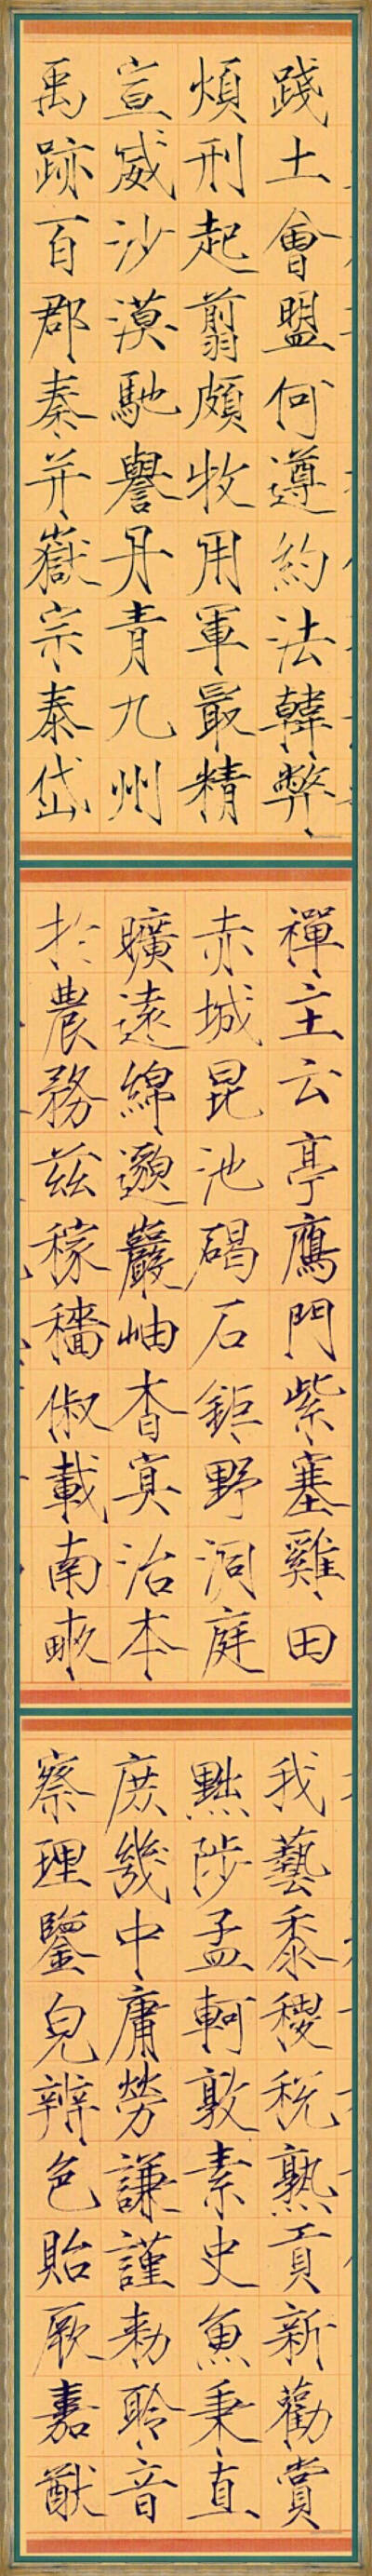 踐土會盟何遵約法韓弊
煩刑起翦頗牧用軍最精
宣威沙漠馳譽丹青九州
禹跡百郡秦并嶽宗泰岱
禪主云亭鴈門紫塞雞田
赤城昆池碣石鉅野洞庭
曠遠綿邈巖岫杳冥治本
於農務茲稼穡俶載南畝
我藝黍稷稅熟貢新勸賞
黜陟孟軻敦素史魚秉直
庶幾中庸勞謙謹勑聆音
察理鑒皃辨色貽厥嘉猷